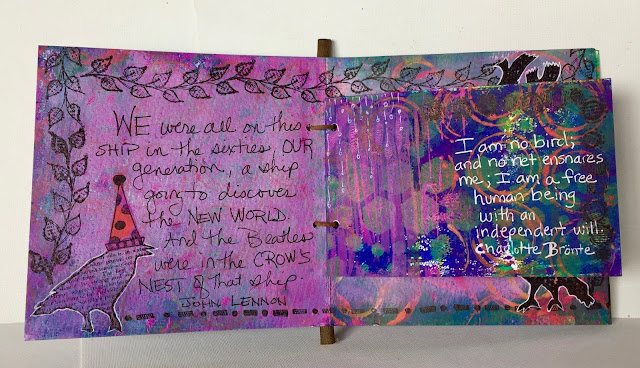 WE were all on this
SHIP in the sixties, OUR
generation, a ship
going to discover
the NEW WORLD.
And the Beatles
were in the CROW'S
NEST of that ship.
JOHN LENNON
I am no bird;
and no net ensnares
me; I am a free
human being
with an
independent will.
Charlotte Brönte